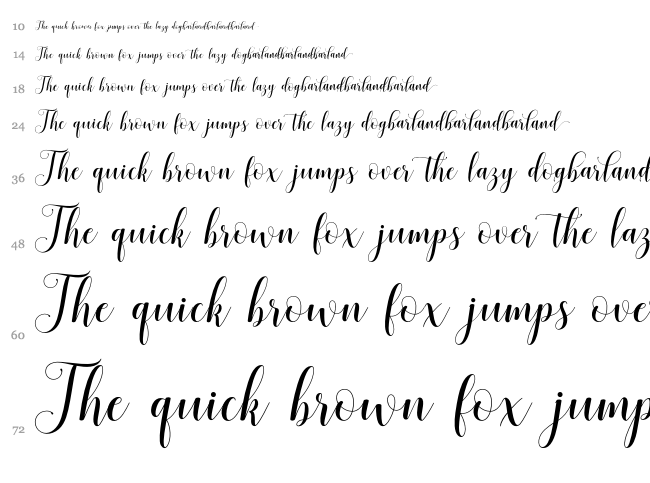 10 The quick brown fox jumps over the lazy dogbarlandbarlandbarland
14 The quick brown fox jumps over the lazy dogbarlandbarlandbarland
18 The quick brown fox jumps over the lazy dogbarlandbarlandbarland
24 The quick brown fox jumps over the lazy dogbarlandbarlandbarland
36 The quick brown fox jumps over the lazy dogbarland
48 The quick brown fox jumps over the laz
60 The quick brown fox jumps over
72 The quick brown fox jump